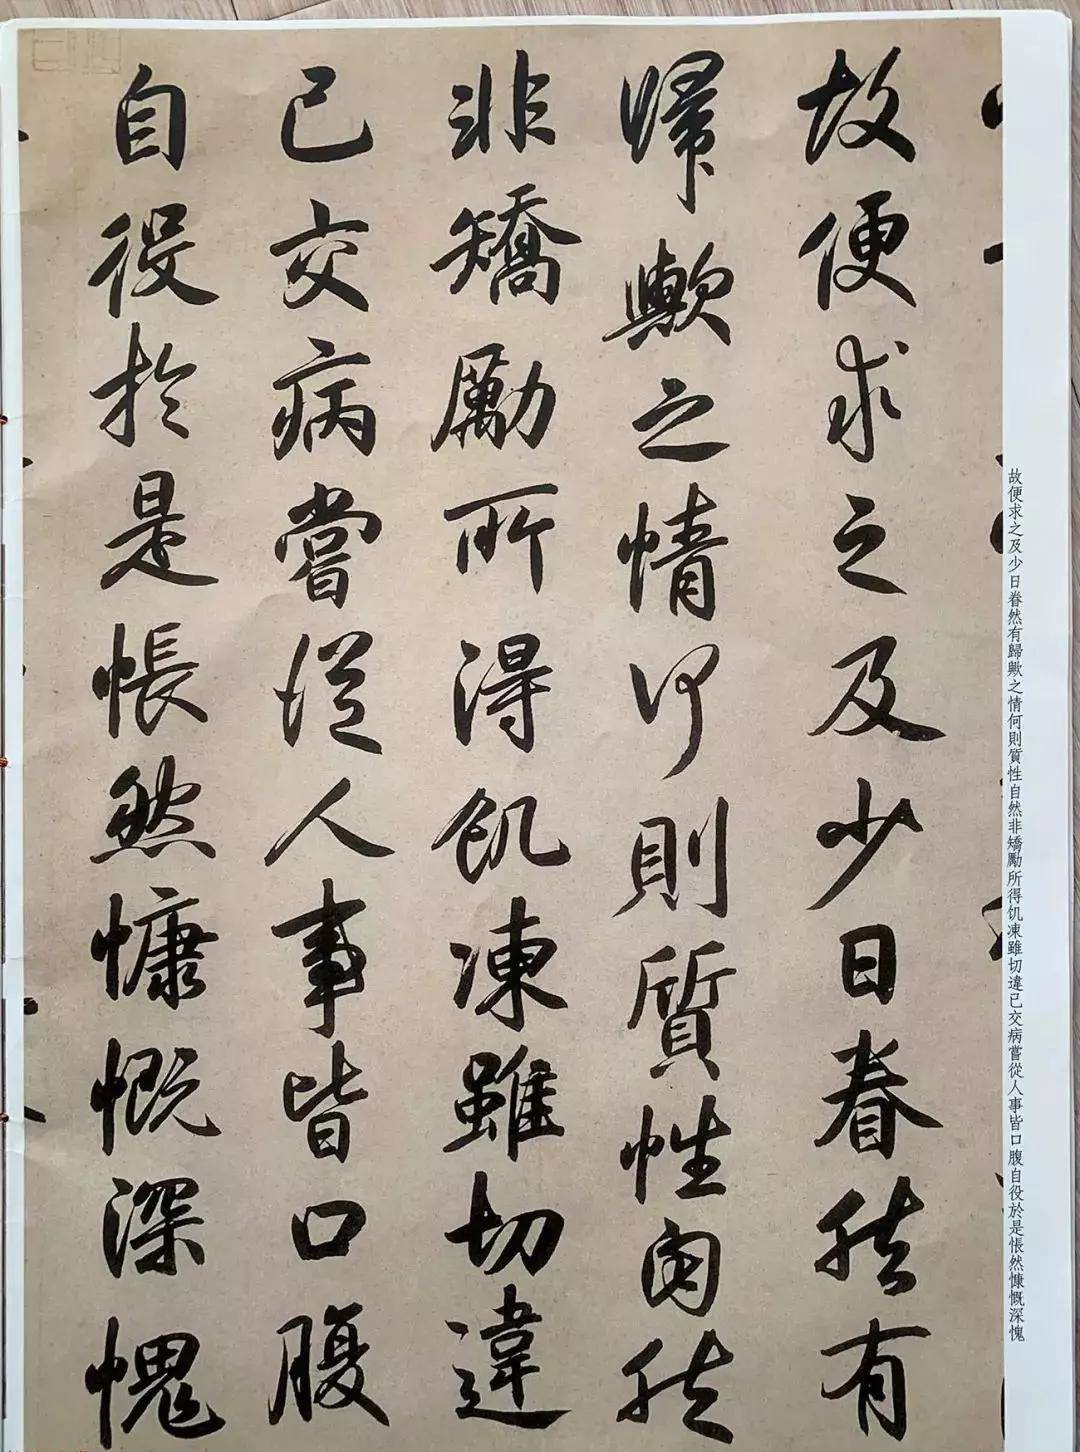 故便求之及少日眷然有
歸歟之情何則質性自然
非矯勵所得飢凍雖切違
己交病嘗從人事皆口腹
自役於是悵然慷慨深愧
故便求之及少日眷然有歸歟之情何則質性自然非矯勵所得饥凍雖切違已交病嘗從人事皆口腹自役於是悵然慷慨深愧